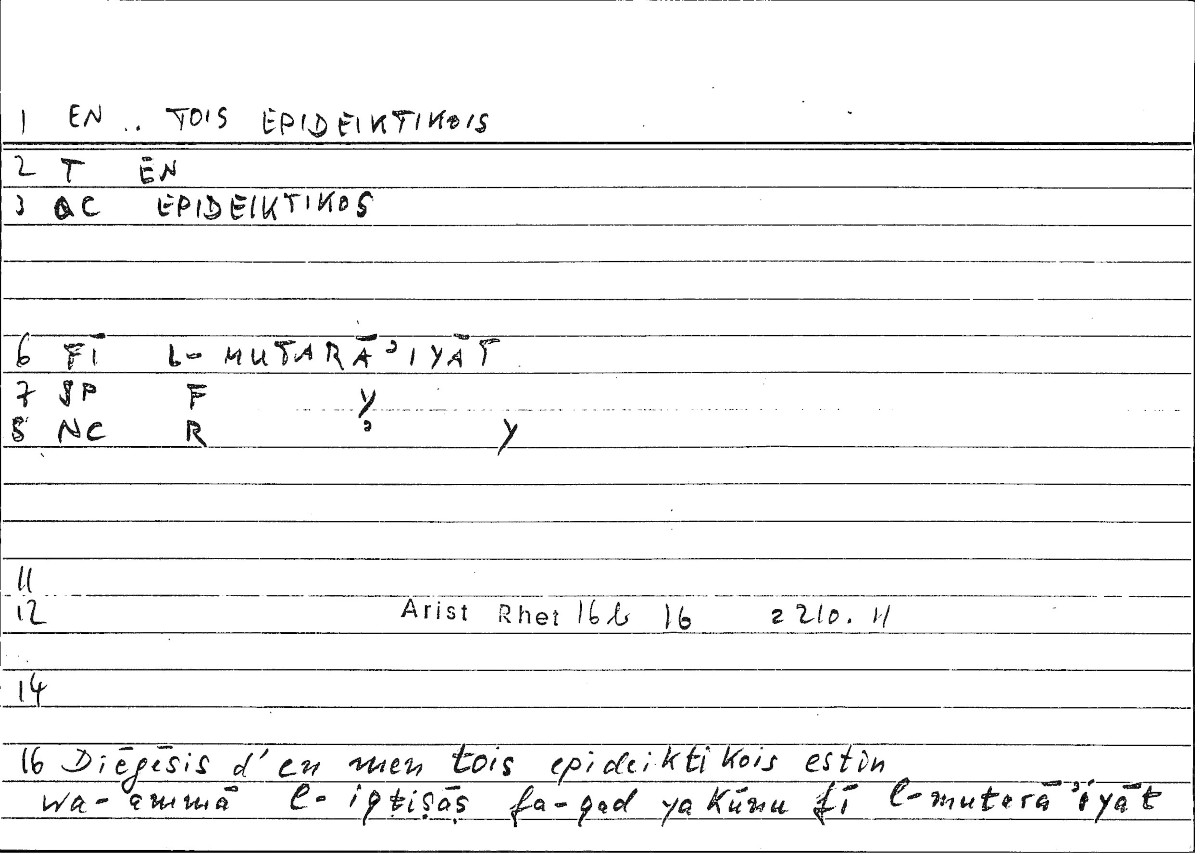 1 EN .. TOIS EPIDEIKTIKOIS
2 T EN
3 QC EPIDEIKTIKOS
6 FĪ L-MUTARĀʾIYĀT
7 SP F Y
8 NC R ʾ Y
11
12 Arist Rhet 16b 16 2 210. 11
14
16 Diēgēsis d'en men tois epideiktikois estin
wa-ammā l-iqtiṣāṣ fa-qad yakūnu fī l-mutarāʾiyāt